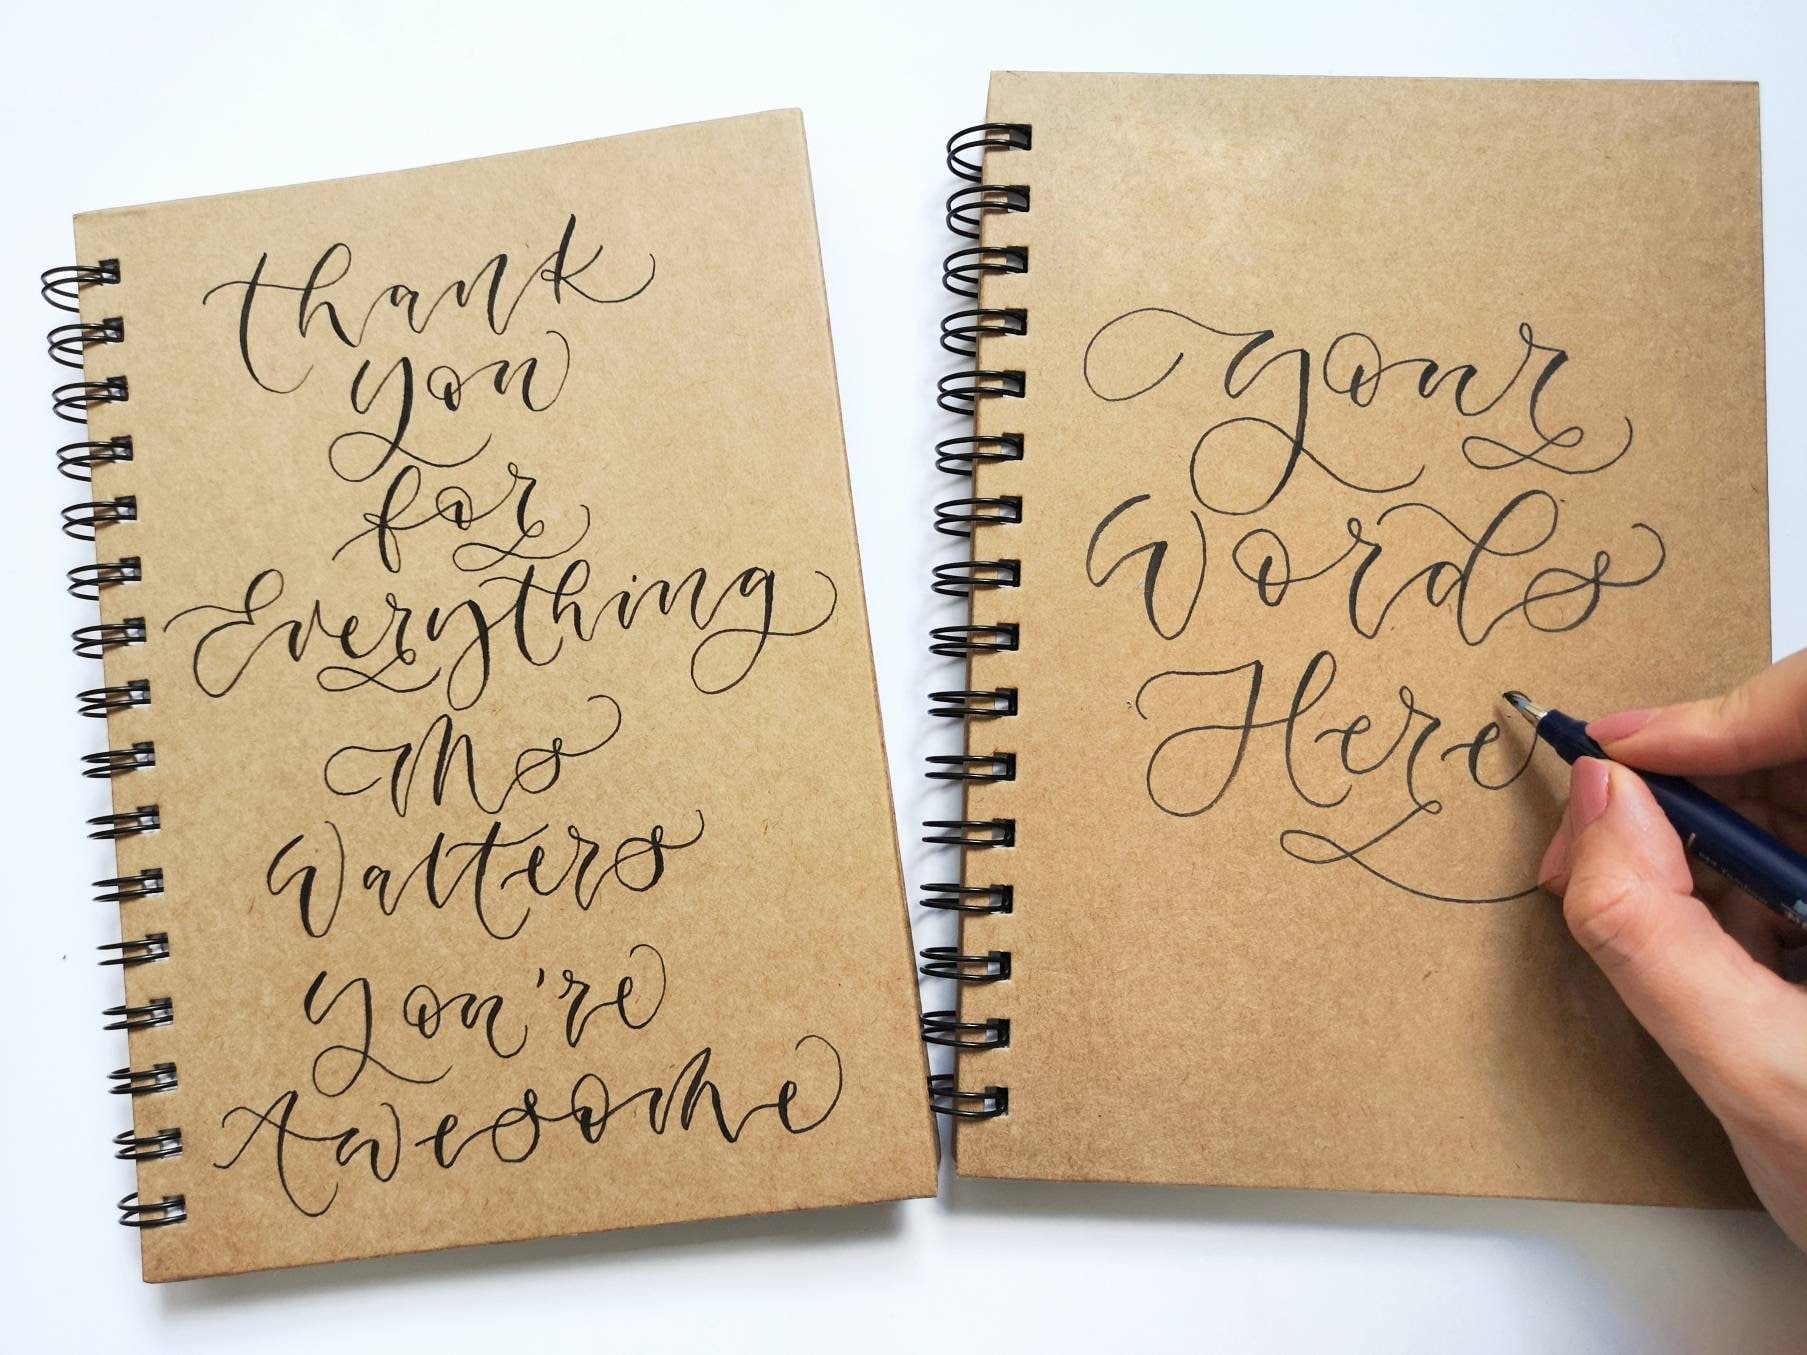 thank
you
for
Everything
Ms
Walters
you're
Awesome
Your
Words
Here